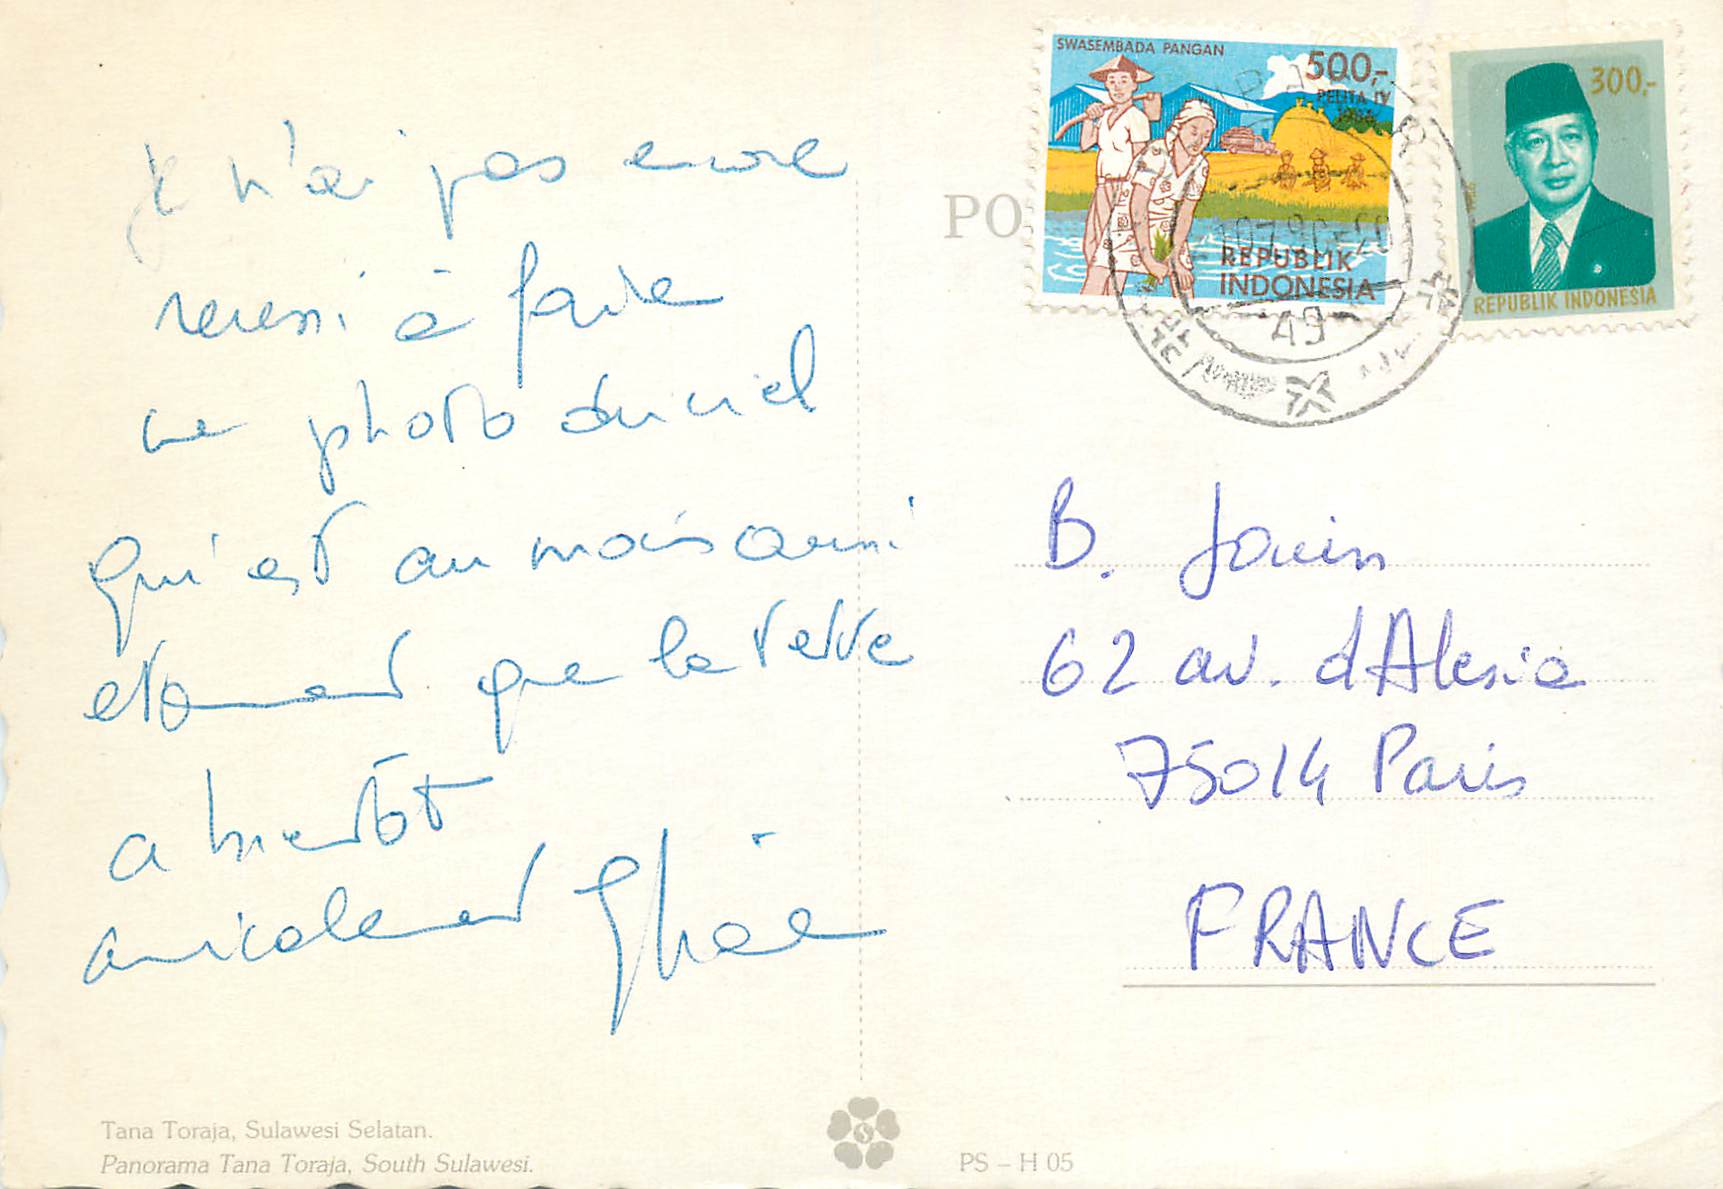 Je n'ai pas encore
réussi à faire
une photo du ciel
qui est au moins aussi
étonnant que la terre
a bientôt
amicalement
SWASEMBADA PANGAN
500,-
PELITA IV
REPUBLIK
INDONESIA
300,-
REPUBLIK INDONESIA
PO
49
B. Jouin
62 av. d'Alésia
75014 Paris
FRANCE
Tana Toraja, Sulawesi Selatan.
Panorama Tana Toraja, South Sulawesi.
PS – H 05